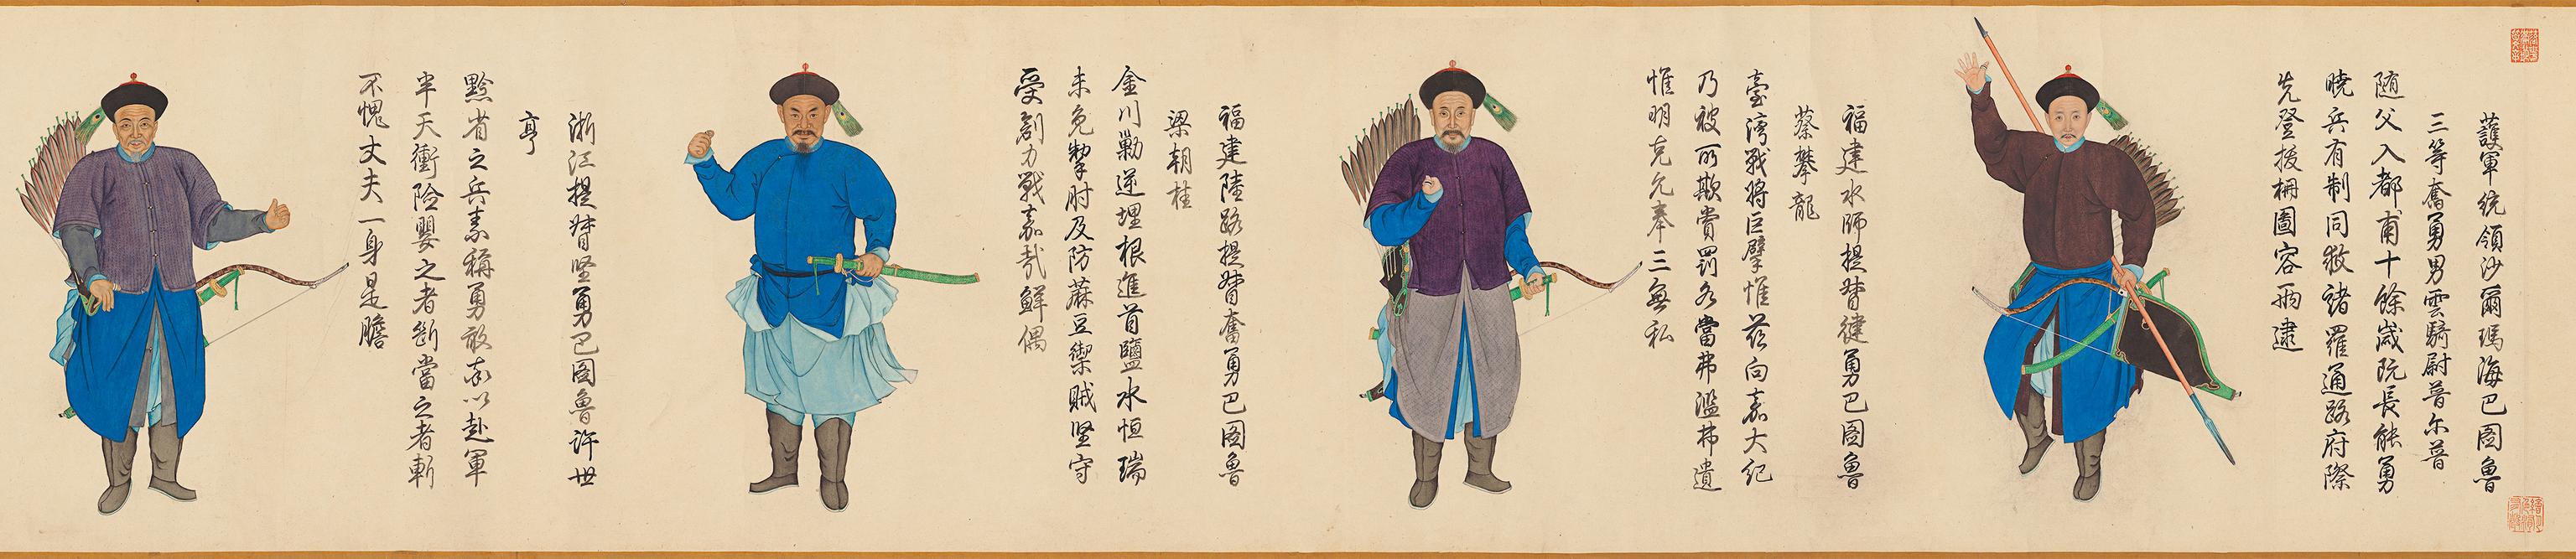 護軍統領沙爾瑪海巴圖魯
三等奮勇男雲騎尉普尔普
随父入都甫十餘歳阮長能勇
曉兵有制同敵諸羅通路府際
先登拔柵圖容兩逮
福建水師提督健勇巴圖魯
蔡攀龍
臺湾戰將巨擘惟茲向嘉大紀
乃被所欺賞罰各當弗濫弗遺
惟明克允奉三無私
福建陸路提督奮勇巴圖魯
梁朝桂
金川勦逆埋根進首鹽水恒瑞
未免掣肘及防蔴豆禦賊坚守
受創力戰嘉哉鮮偶
浙江提督坚勇巴図魯許世
亨
黔省之兵素稱勇敢率以赴軍
半天衝險嬰之者斷當之者斬
不愧丈夫一身是膽